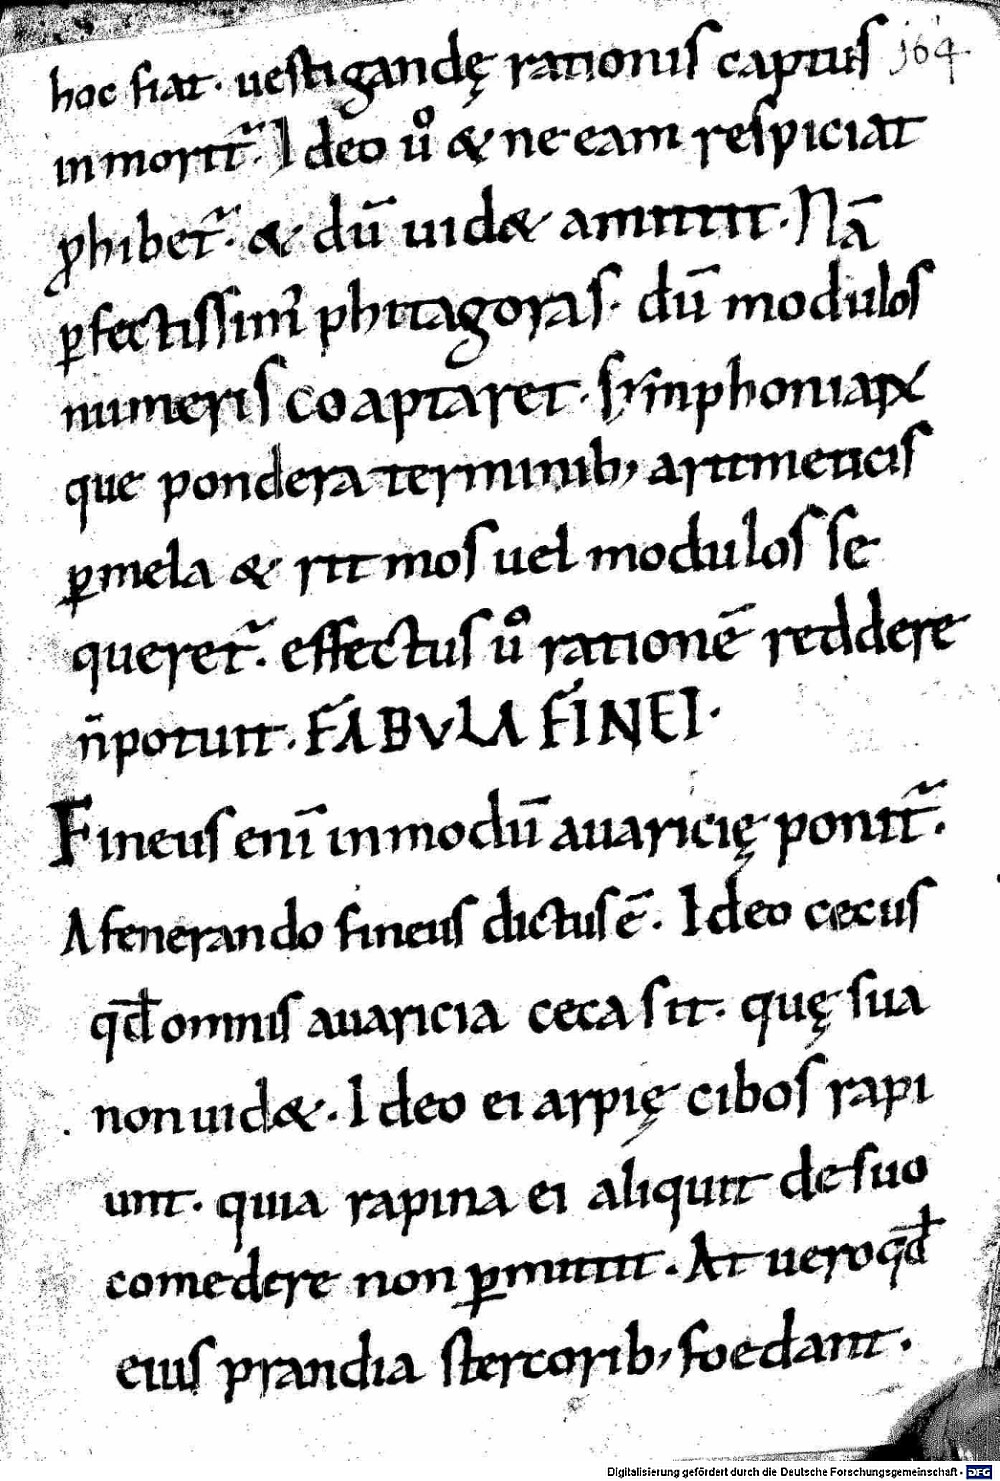 hoc fiat · uestigandę rationis captus 164.
inmortit᷑. Ideo uͦ & ne eam respiciat
ꝓhibet᷑. & dū uid& amittit. Nā
ꝑfectissim᷑ phitagoras. dū modulos
numeris coaptaret. simphoniaꝝ
que pondera terminib; aritmeticis
ꝑmela & ritmos uel modulos se
queret᷑. effectus uͦ rationē reddere
n̄potuit. FABVLA FINEI.
Fineus enī inmodū auaricię ponit᷑.
A fenerando fineus dictus ē. Ideo cecus
qd̄ omnis auaricia ceca sit. quę sua
non uid&. Ideo ei arpię cibos rapi
unt. quia rapina ei aliquit de suo
comedere non ꝑmittit. At uero qd̄
eius prandia stercorib; foedant.
Digitalisierung gefördert durch die Deutsche Forschungsgemeinschaft - DFG